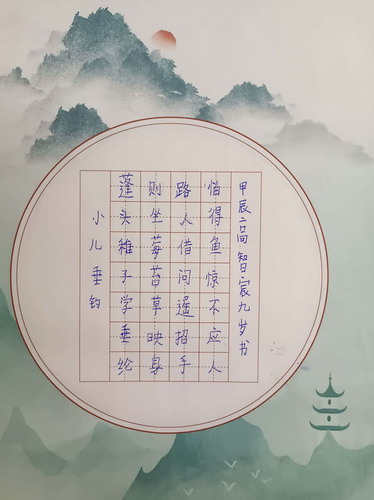 小儿垂钓
蓬头稚子学垂纶
则坐莓苔草映身
路人借问遥招手
怕得鱼惊不应人
甲辰二高智宸九岁书